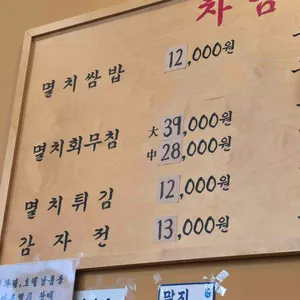 차림
멸치쌈밥 12,000원
멸치회무침 大 39,000원
中 28,000원
멸치튀김 12,000원
감자전 13,000원